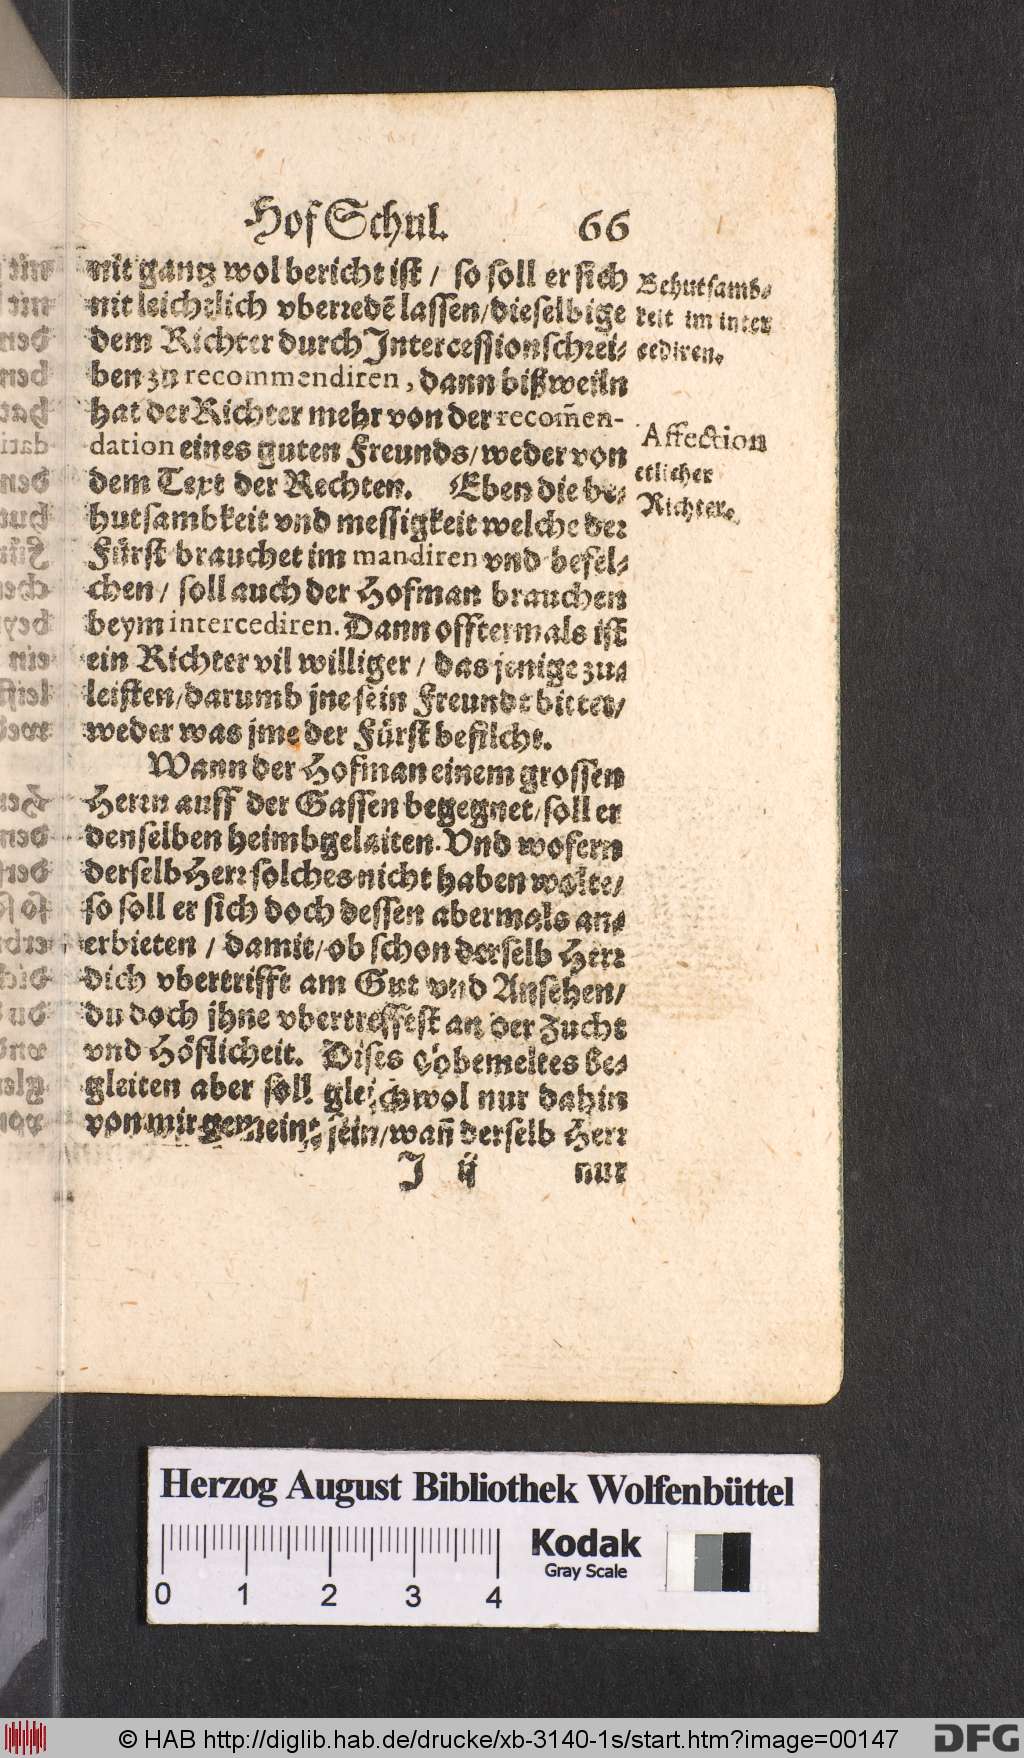 Hof Schul. 66
nit gantz wol bericht ist / so soll er sich
nit leichtlich vberredē lassen/dieselbige
dem Richter durch Intercessionschrei⸗
ben zu recommendiren, dann bißweiln
hat der Richter mehr von der recom̄en-
dation eines guten Freunds/weder von
dem Text der Rechten. Eben die be⸗
hutsambkeit vnd messigkeit welche der
Fürst brauchet im mandiren vnd befel⸗
chen / soll auch der Hofman brauchen
beym intercediren. Dann offtermals ist
ein Richter vil williger / das jenige zu⸗
leisten/darumb jne sein Freundt bittet/
weder was jme der Fürst befilcht.
Wann der Hofman einem grossen
Herrn auff der Gassen begegnet/soll er
denselben heimbgelaiten. Vnd wofern
derselb Herr solches nicht haben wolte/
so soll er sich doch dessen abermals an⸗
erbieten / damit/ob schon derselb Herr
dich vbertrifft am Gut vnd Ansehen/
du doch jhne vbertreffest an der Zucht
vnd Höflicheit. Dises obbemeltes be⸗
gleiten aber soll gleichwol nur dahin
von mir gemeint sein/wañ derselb Herr
J ij nur
Behutsamb⸗
keit im inter
cediren.
Affection
etlicher
Richter.
Herzog August Bibliothek Wolfenbüttel
Kodak
Gray Scale
0 1 2 3 4
© HAB http://diglib.hab.de/drucke/xb-3140-1s/start.htm?image=00147
DFG